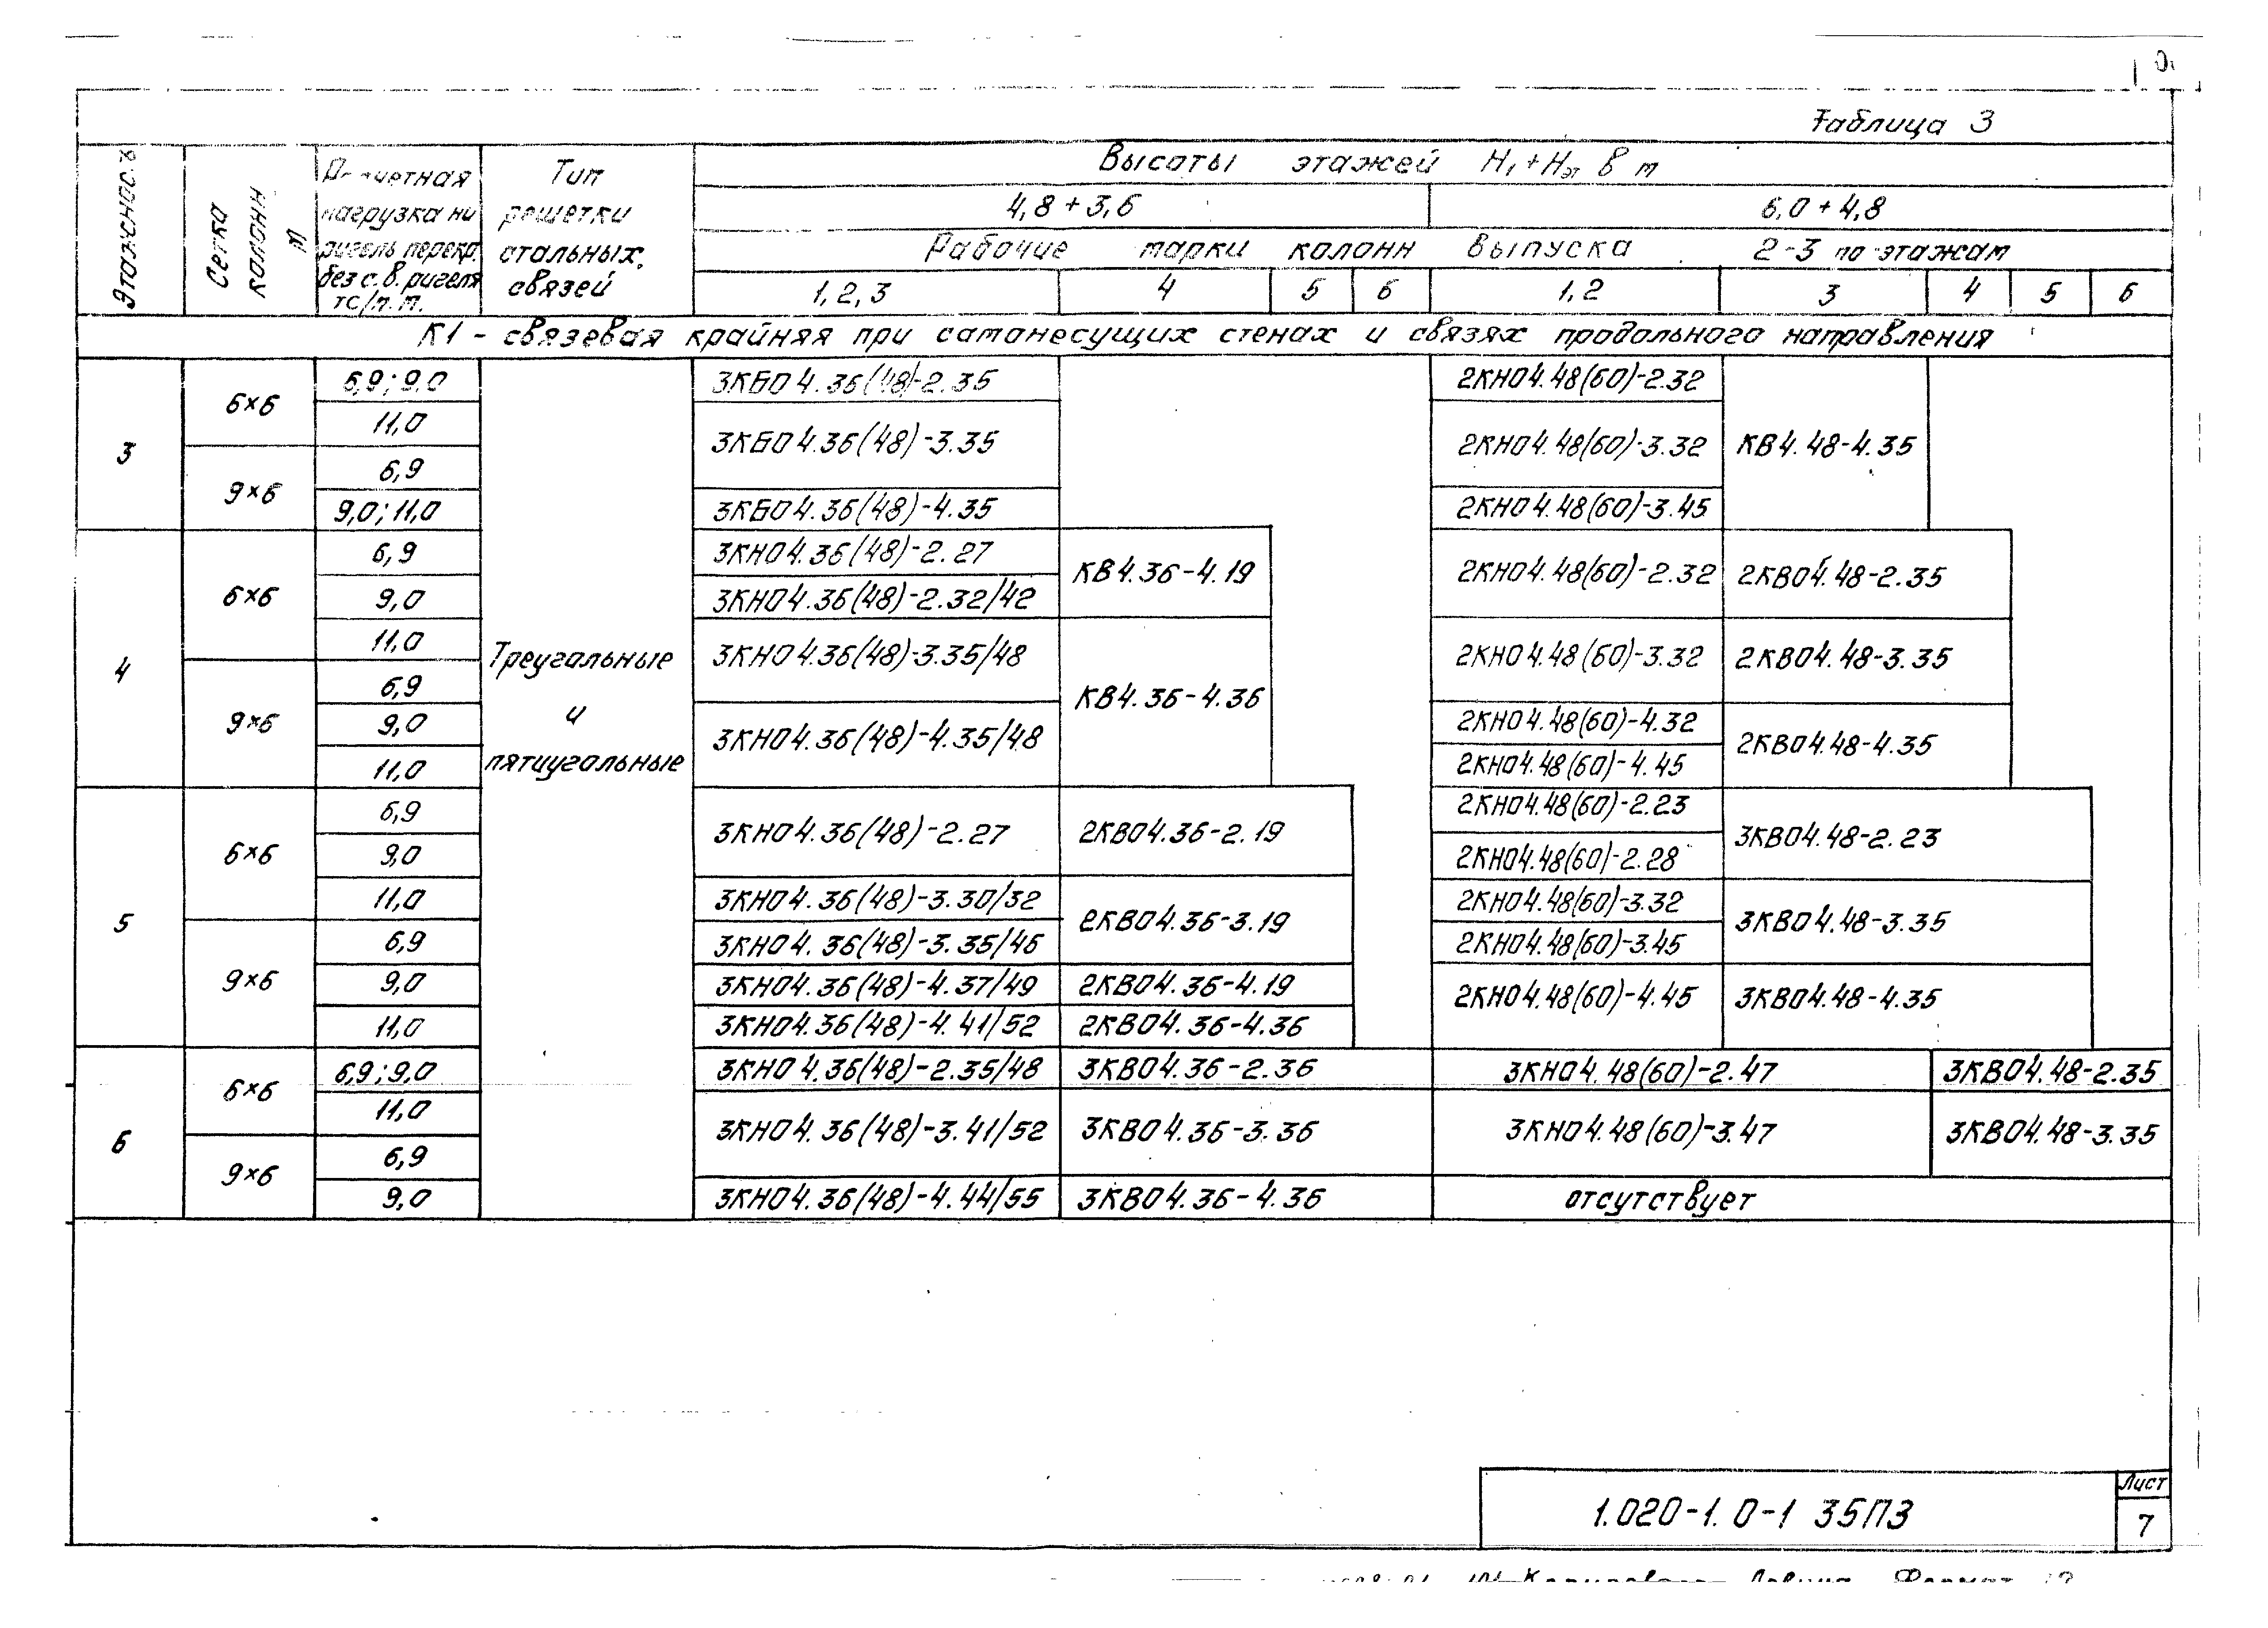 Таблица 3
Этажность
Сетка колонн м
Расчетная нагрузка на ригель перекр. без с.в. ригеля тс/п.м.
Тип решетки стальных связей
Высоты этажей Н₁+Нэт в м
4,8+3,6 6,0+4,8
Рабочие марки колонн выпуска 2-3 по этажам
1,2,3 4 5 6 1,2 3 4 5 6
К1 - связевая крайняя при самонесущих стенах и связях продольного направления
3 6×6 6,9; 9,0 3КБО4.36(48)-2.35 2КНО4.48(60)-2.32
11,0 3КБО4.36(48)-3.35 2КНО4.48(60)-3.32 КВ4.48-4.35
9×6 6,9
9,0; 11,0 3КБО4.36(48)-4.35 2КНО4.48(60)-3.45
4 6×6 6,9 3КНО4.36(48)-2.27 КВ4.36-4.19 2КНО4.48(60)-2.32 2КВО4.48-2.35
9,0 3КНО4.36(48)-2.32/42
11,0 3КНО4.36(48)-3.35/48 КВ4.36-4.36 2КНО4.48(60)-3.32 2КВО4.48-3.35
9×6 6,9
9,0 3КНО4.36(48)-4.35/48 2КНО4.48(60)-4.32 2КВО4.48-4.35
11,0 2КНО4.48(60)-4.45
Треугольные
и
пятиугольные
5 6×6 6,9 3КНО4.36(48)-2.27 2КВО4.36-2.19 2КНО4.48(60)-2.23 3КВО4.48-2.23
9,0 2КНО4.48(60)-2.28
11,0 3КНО4.36(48)-3.30/32 2КВО4.36-3.19 2КНО4.48(60)-3.32 3КВО4.48-3.35
9×6 6,9 3КНО4.36(48)-3.35/46 2КНО4.48(60)-3.45
9,0 3КНО4.36(48)-4.37/49 2КВО4.36-4.19 2КНО4.48(60)-4.45 3КВО4.48-4.35
11,0 3КНО4.36(48)-4.41/52 2КВО4.36-4.36
6 6×6 6,9; 9,0 3КНО4.36(48)-2.35/48 3КВО4.36-2.36 3КНО4.48(60)-2.47 3КВО4.48-2.35
11,0 3КНО4.36(48)-3.41/52 3КВО4.36-3.36 3КНО4.48(60)-3.47 3КВО4.48-3.35
9×6 6,9
9,0 3КНО4.36(48)-4.44/55 3КВО4.36-4.36 отсутствует
1.020-1. 0-1 35ПЗ
Лист
7